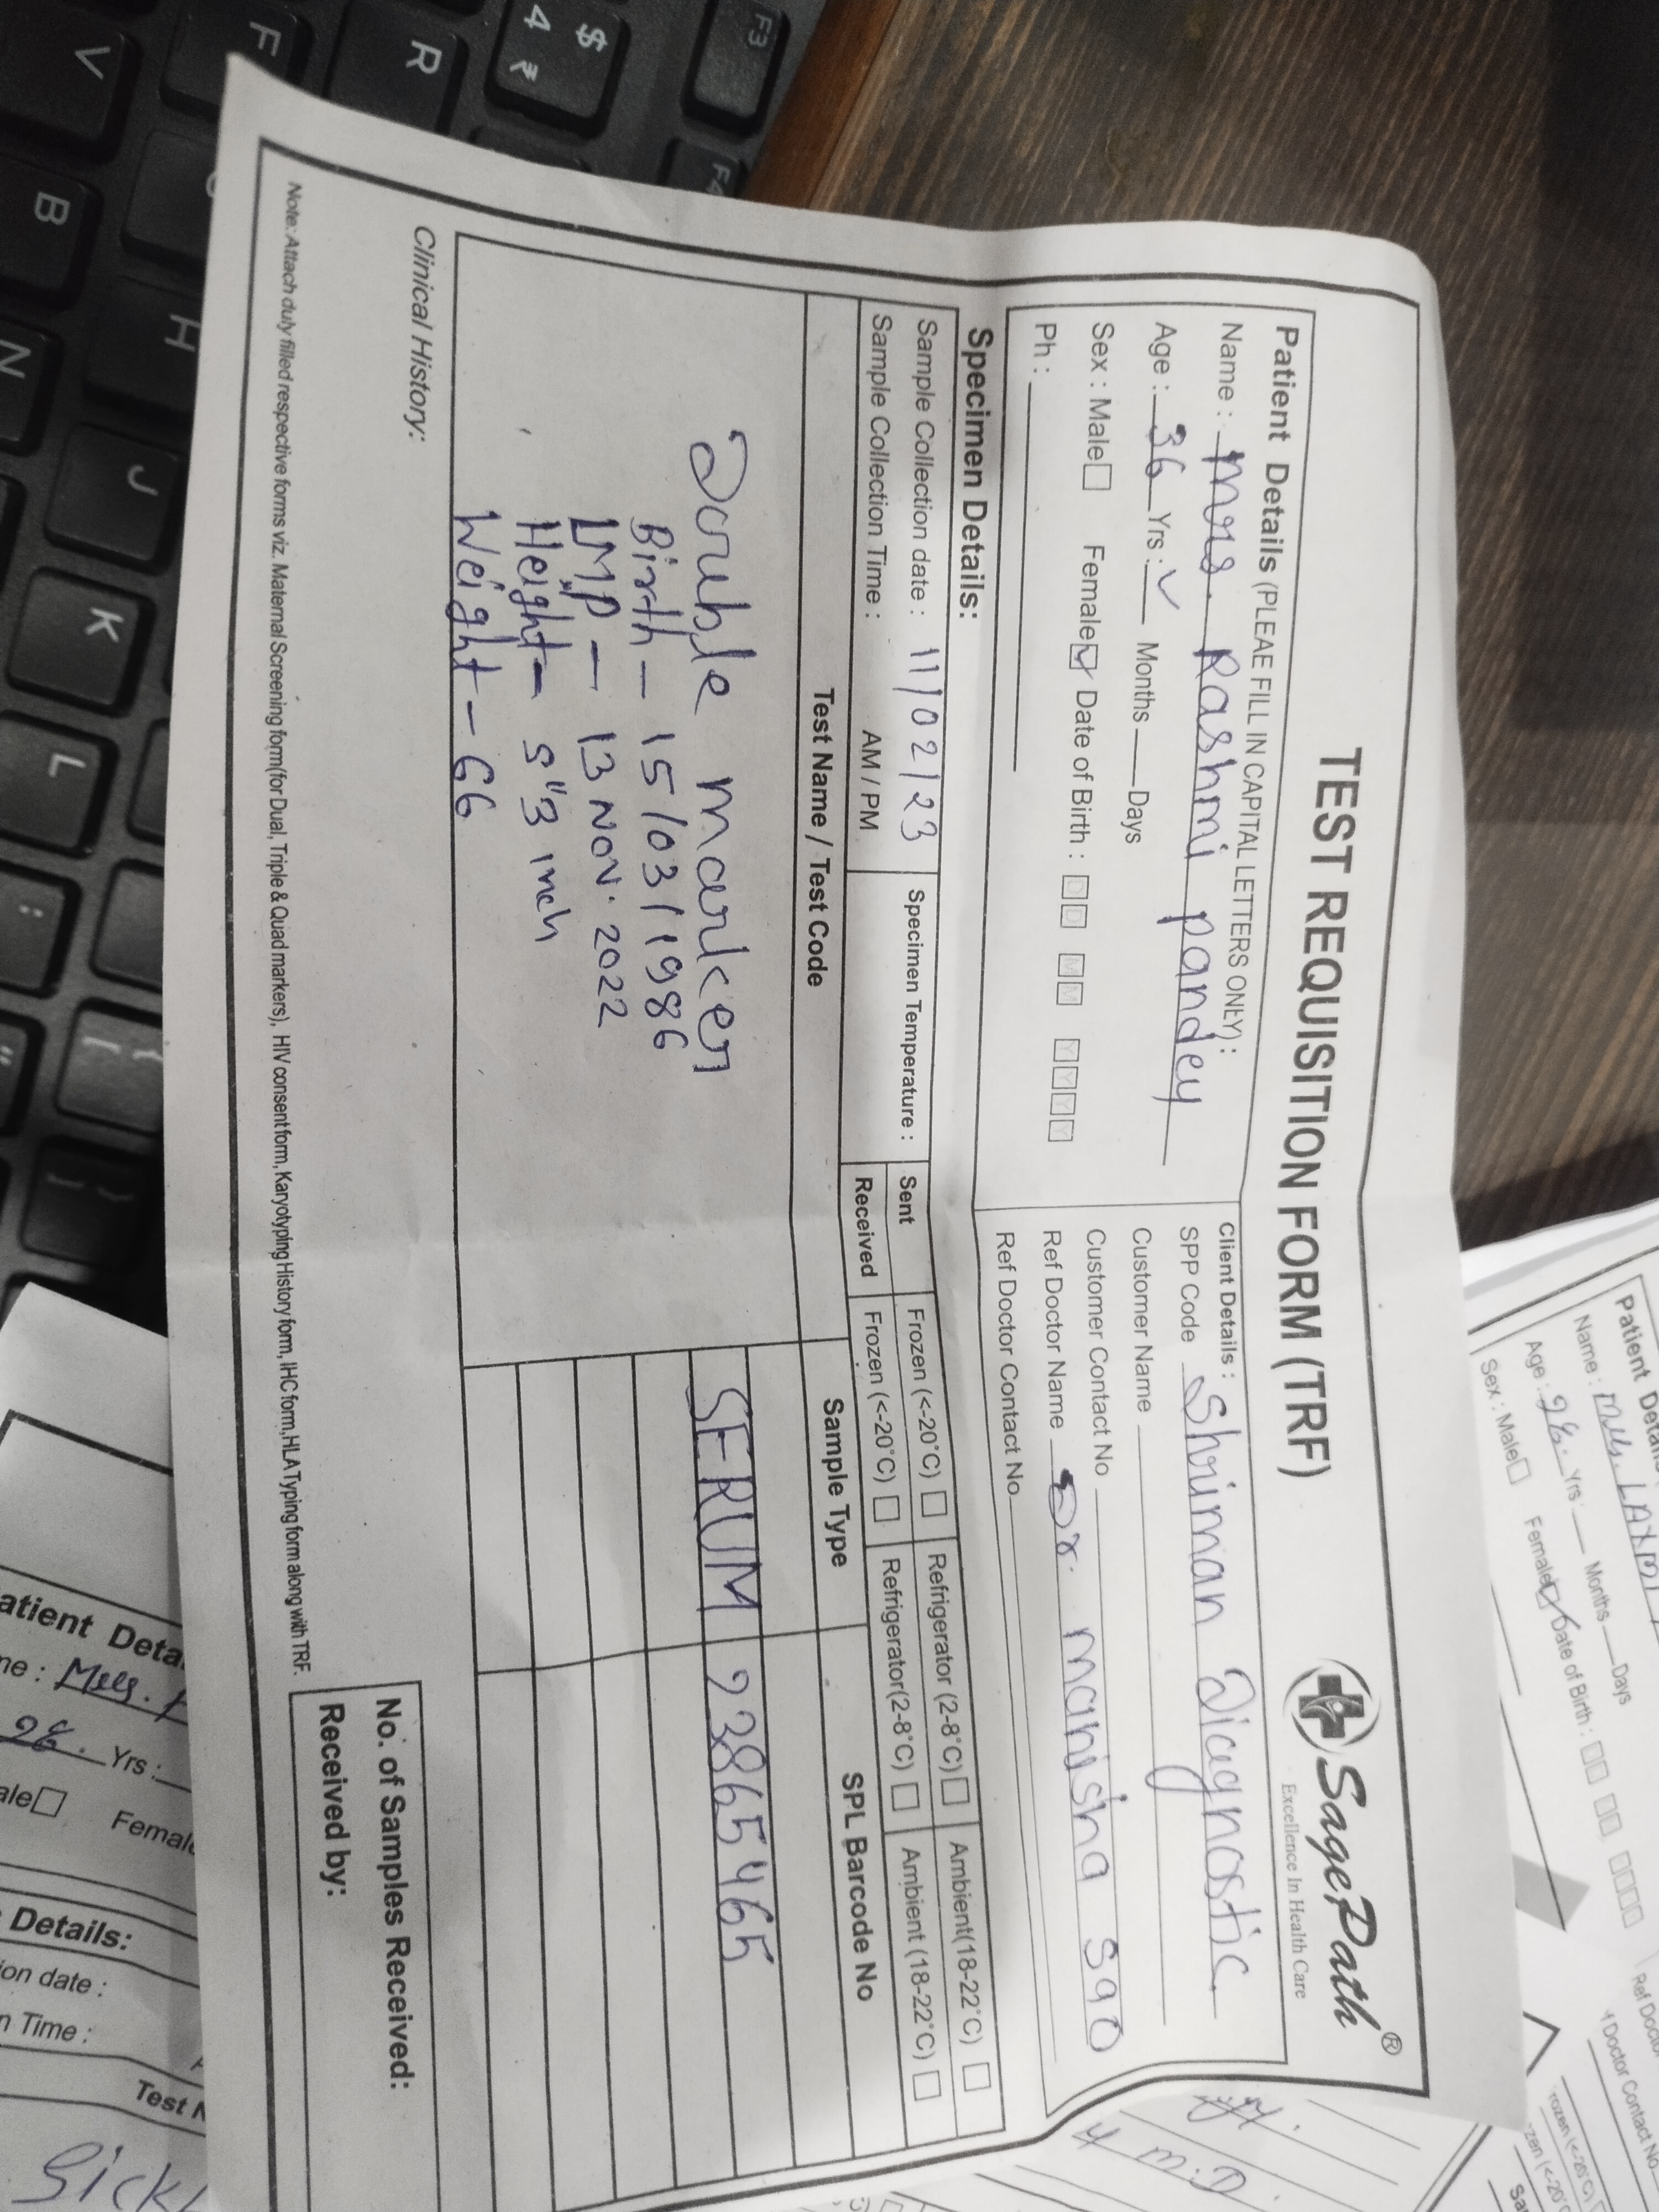 TEST REQUISITION FORM (TRF)
SagePath®
Excellence In Health Care
Patient Details (PLEAE FILL IN CAPITAL LETTERS ONLY) :
Name : Mrs. Rashmi pandey
Age : 36 Yrs : Months Days
Sex : Male Female Date of Birth : DD MM YYYY
Ph :
Client Details : Shriman Diagnostic
SPP Code
Customer Name
Customer Contact No
Ref Doctor Name Dr. manisha
Ref Doctor Contact No
Specimen Details:
Sample Collection date : 11/02/23
Sample Collection Time : AM / PM
Specimen Temperature :
Sent Frozen (<-20°C) Refrigerator (2-8°C) Ambient(18-22°C)
Received Frozen (<-20°C) Refrigerator(2-8°C) Ambient (18-22°C)
Test Name / Test Code Sample Type SPL Barcode No
Double marker SERUM 23865465
Birth - 15/03/1986
LMP - 13 Nov. 2022
Height - 5"3 inch
Weight - 66
Clinical History:
No. of Samples Received:
Received by:
Note: Attach duly filled respective forms viz. Maternal Screening form(for Dual, Triple & Quad markers), HIV consent form, Karyotyping History form, IHC form, HLA Typing form along with TRF.
Patient Detai
Name : Mrs. LAXMI
Age : 26. Yrs Months Days
Sex : Male Female Date of Birth :
atient Deta
ne : Mrs.
26. Yrs :
ale Femal
Details:
ion date :
n Time :
Test N
Sick
Ref Docto
Doctor Contact No
rozen (<-20°C)
zen (<-20°C
Sa
F3
F4
$
4 ₹
R
F
V
B
H
N
J
K
L
:
;
{
[
}